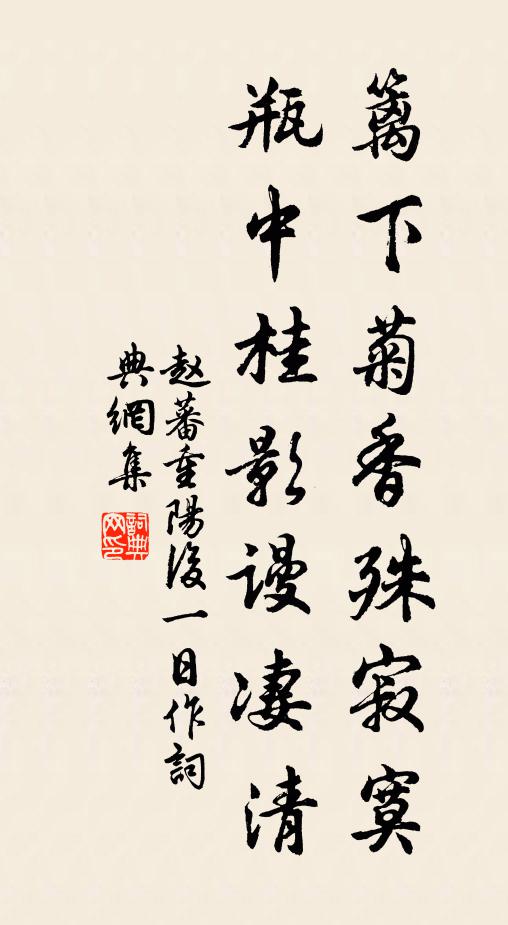 篱下菊香殊寂寞
瓶中桂影谩凄清
赵蕃重陽後一日作詞
典網集
詞典
网印